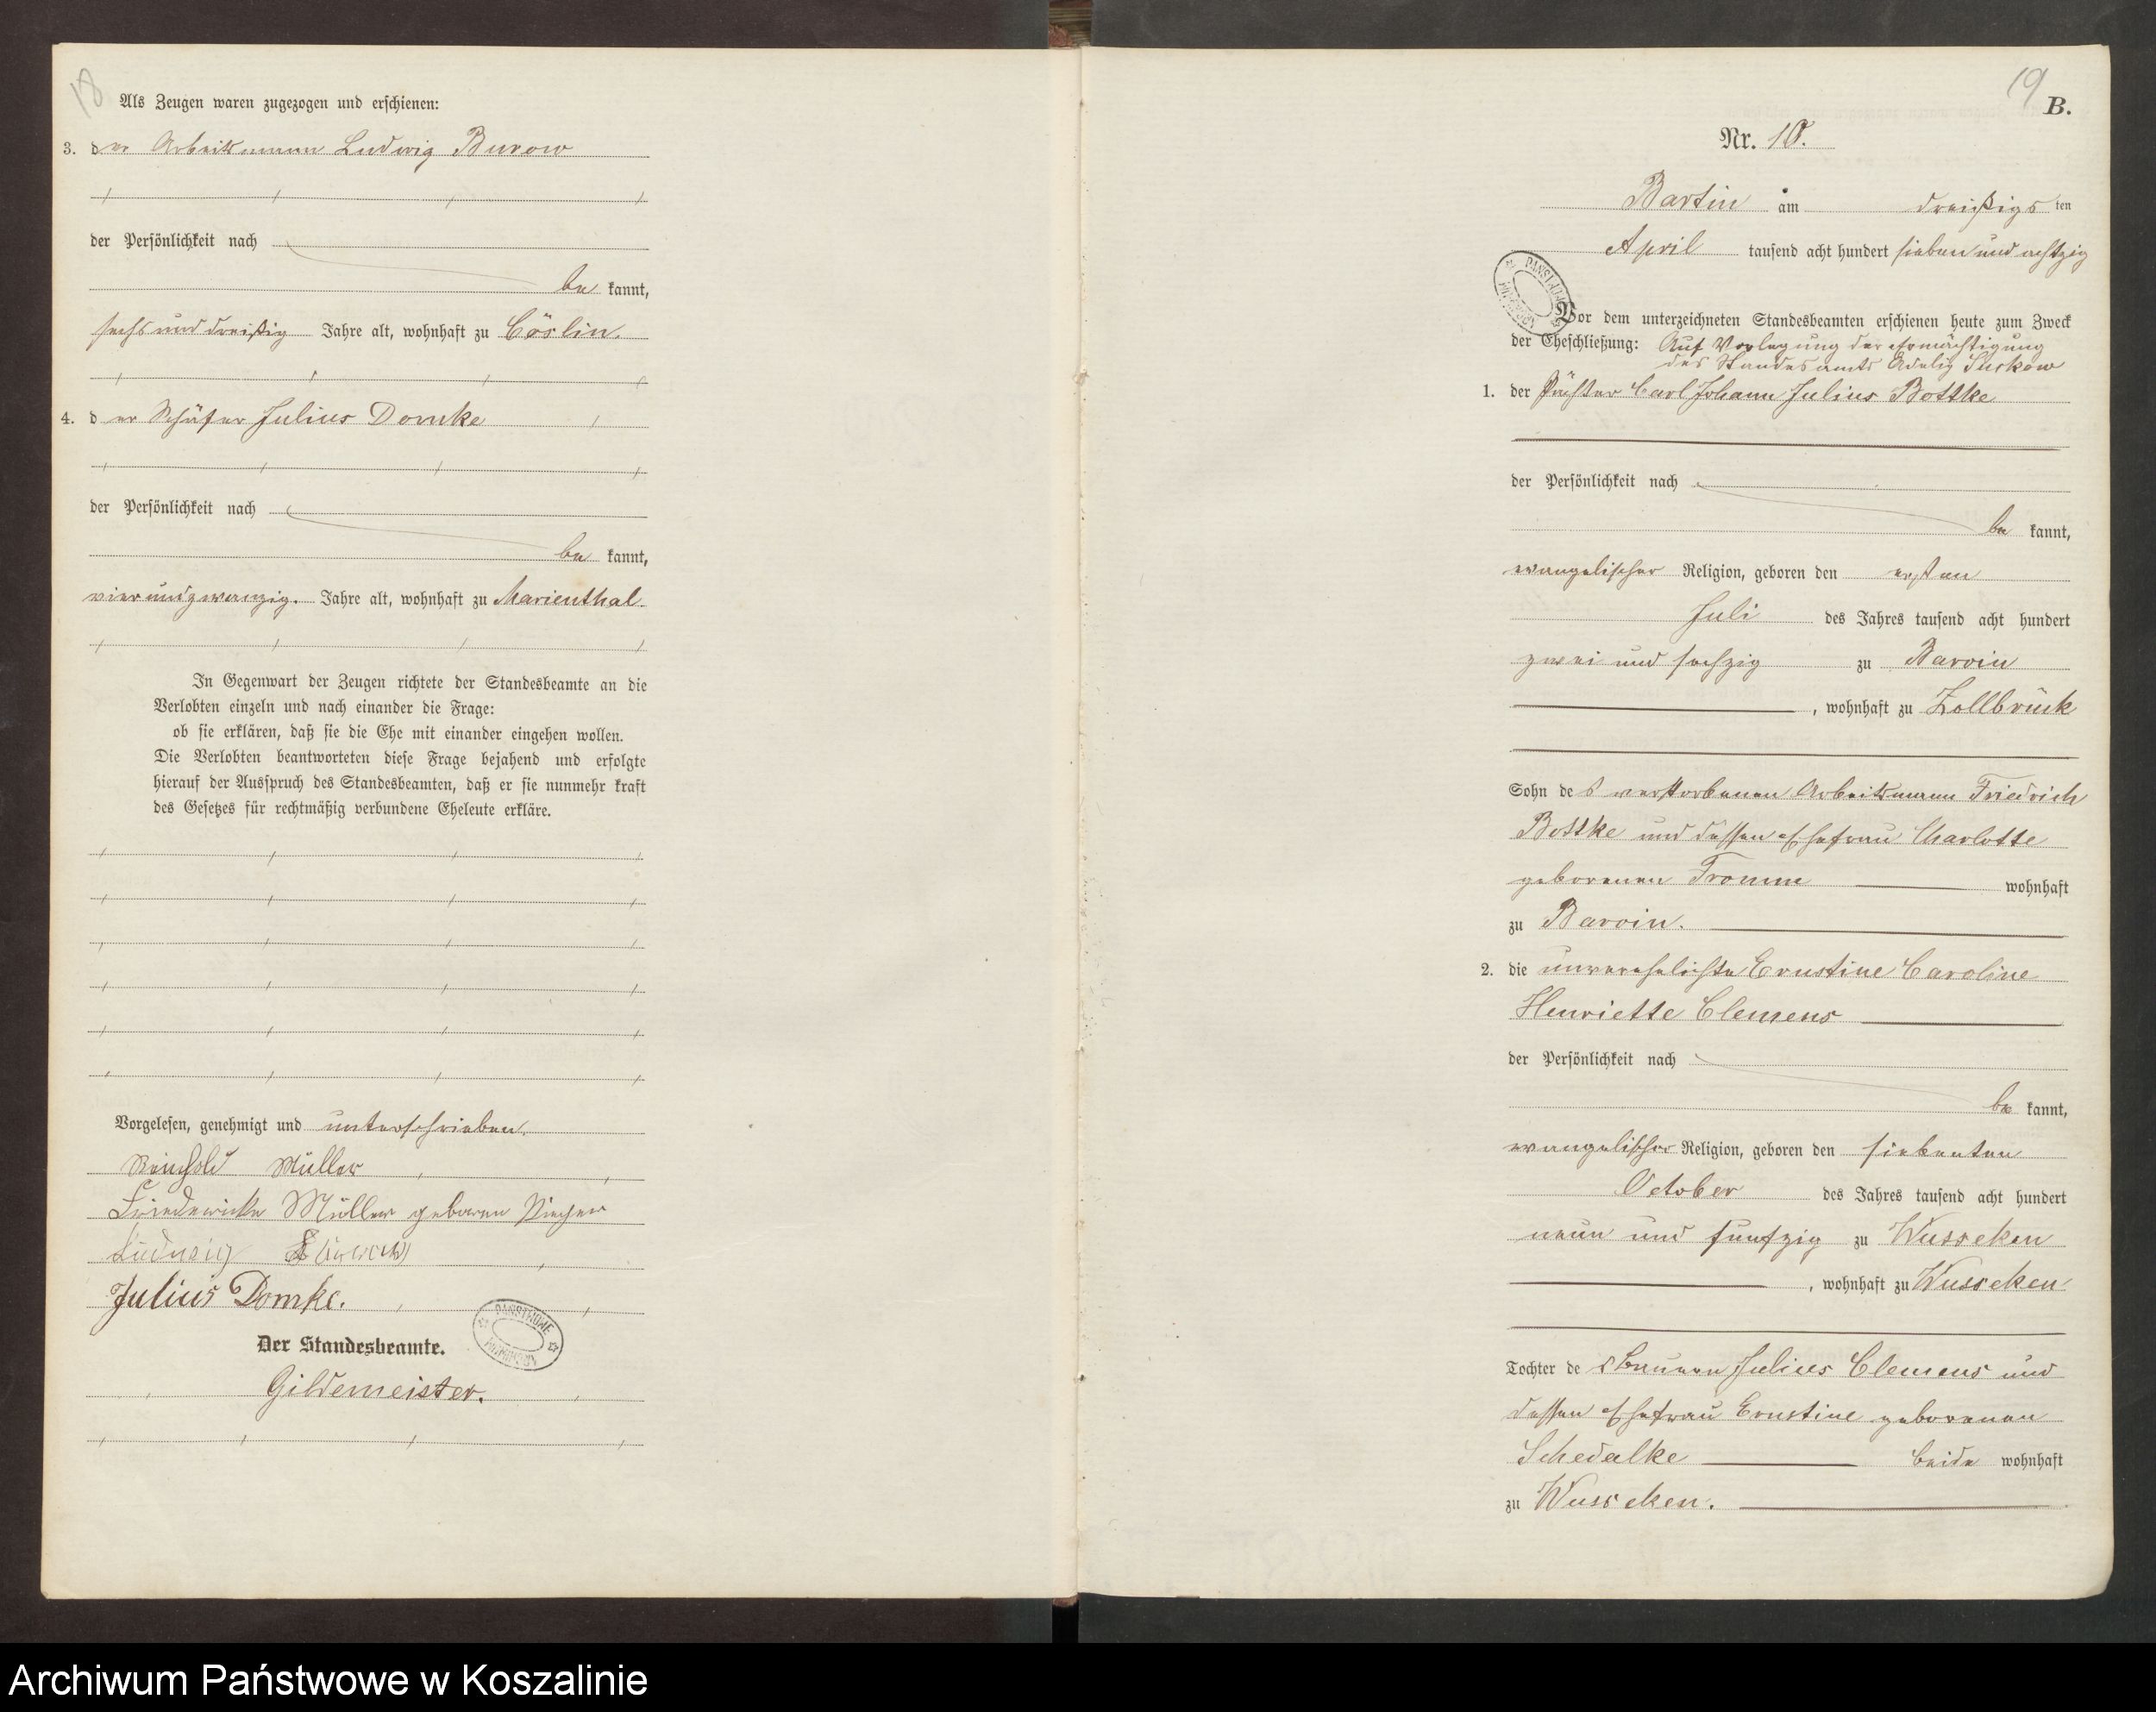 18
Als Zeugen waren zugezogen und erschienen:
3. der Arbeitsmann Ludwig Burow
der Persönlichkeit nach
be kannt,
sechs und dreißig Jahre alt, wohnhaft zu Cöslin.
4. der Schäfer Julius Domke
der Persönlichkeit nach
be kannt,
vier und zwanzig. Jahre alt, wohnhaft zu Marienthal.
In Gegenwart der Zeugen richtete der Standesbeamte an die
Verlobten einzeln und nach einander die Frage:
ob sie erklären, daß sie die Ehe mit einander eingehen wollen.
Die Verlobten beantworteten diese Frage bejahend und erfolgte
hierauf der Ausspruch des Standesbeamten, daß er sie nunmehr kraft
des Gesetzes für rechtmäßig verbundene Eheleute erkläre.
Vorgelesen, genehmigt und unterschrieben.
Reinhold Müller
Friedericke Müller geboren
Ludwig Burow
Julius Domke.
Der Standesbeamte.
PAŃSTWOWE ARCHIWUM
Gildemeister.
19
B.
Nr. 10.
Bartin am dreißigsten
April tausend acht hundert sieben und achtzig
PAŃSTWOWE ARCHIWUM
Vor dem unterzeichneten Standesbeamten erschienen heute zum Zweck
der Eheschließung: Auf Vorlegung der Ermächtigung
des Standesamts Adelig Suckow
1. der Pächter Carl Johann Julius Bottke
der Persönlichkeit nach
be kannt,
evangelischer Religion, geboren den ersten
Juli des Jahres tausend acht hundert
zwei und sechzig zu Barvin
, wohnhaft zu Zollbrück
Sohn des verstorbenen Arbeitsmann Friedrich
Bottke und dessen Ehefrau Charlotte
geborenen Fromm wohnhaft
zu Barvin.
2. die unverehelichte Ernstine Caroline
Henriette Clemens
der Persönlichkeit nach
be kannt,
evangelischer Religion, geboren den siebenten
October des Jahres tausend acht hundert
neun und funfzig zu Wusseken
, wohnhaft zu Wusseken
Tochter des Bauern Julius Clemens und
dessen Ehefrau Ernstine geborenen
Schedalke beide wohnhaft
zu Wusseken.
Archiwum Państwowe w Koszalinie